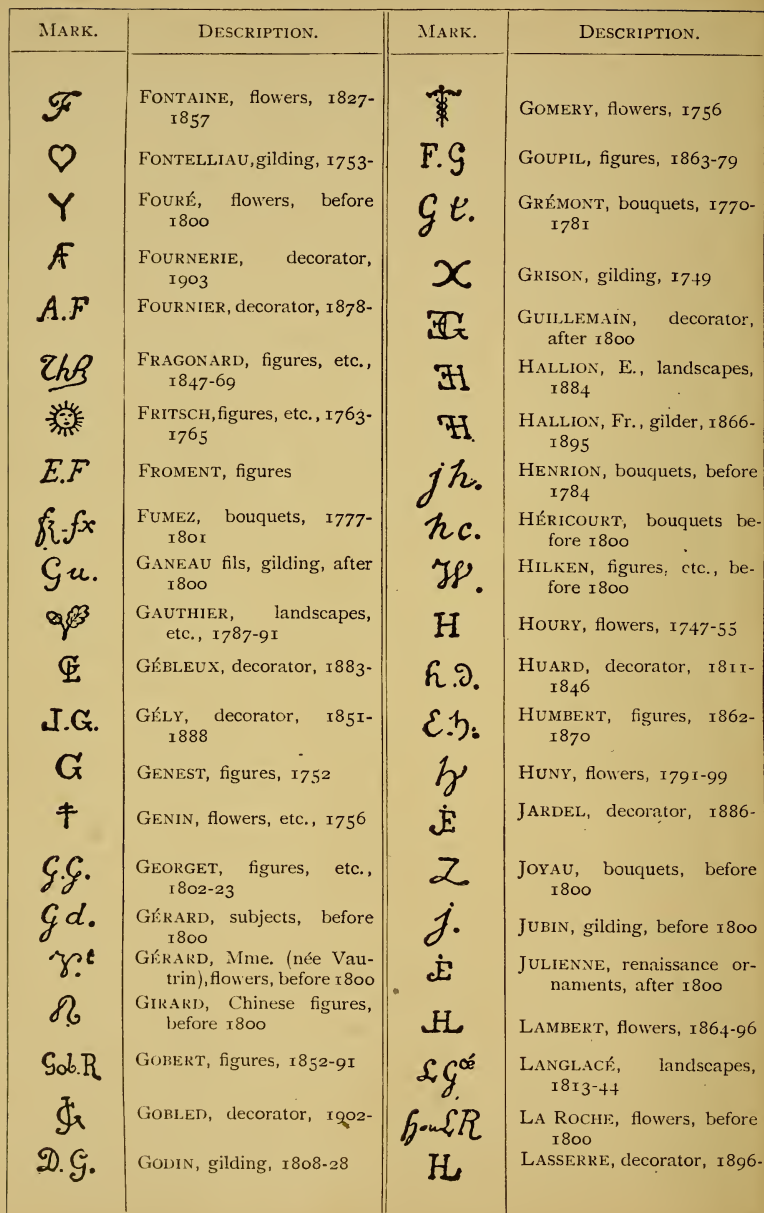 MARK. DESCRIPTION.
F FONTAINE, flowers, 1827-
1857
FONTELLIAU, gilding, 1753-
Y FOURÉ, flowers, before
1800
AF FOURNERIE, decorator,
1903
A.F FOURNIER, decorator, 1878-
FRAGONARD, figures, etc.,
1847-69
FRITSCH, figures, etc., 1763-
1765
E.F FROMENT, figures
fz-fx FUMEZ, bouquets, 1777-
1801
Gu. GANEAU fils, gilding, after
1800
GAUTHIER, landscapes,
etc., 1787-91
GÉBLEUX, decorator, 1883-
J.G. GÉLY, decorator, 1851-
1888
G GENEST, figures, 1752
GENIN, flowers, etc., 1756
G.G. GEORGET, figures, etc.,
1802-23
Gd. GÉRARD, subjects, before
1800
GÉRARD, Mme. (née Vau-
trin), flowers, before 1800
GIRARD, Chinese figures,
before 1800
Gob.R GOBERT, figures, 1852-91
GOBLED, decorator, 1902-
D.G. GODIN, gilding, 1808-28
MARK. DESCRIPTION.
GOMERY, flowers, 1756
F.G GOUPIL, figures, 1863-79
Gt. GRÉMONT, bouquets, 1770-
1781
X GRISON, gilding, 1749
GUILLEMAIN, decorator,
after 1800
HALLION, E., landscapes,
1884
HALLION, Fr., gilder, 1866-
1895
jh. HENRION, bouquets, before
1784
hc. HÉRICOURT, bouquets be-
fore 1800
W. HILKEN, figures, etc., be-
fore 1800
H HOURY, flowers, 1747-55
h.D. HUARD, decorator, 1811-
1846
E.h. HUMBERT, figures, 1862-
1870
HUNY, flowers, 1791-99
JARDEL, decorator, 1886-
Z JOYAU, bouquets, before
1800
j. JUBIN, gilding, before 1800
JULIENNE, renaissance or-
naments, after 1800
LAMBERT, flowers, 1864-96
LGcé LANGLACÉ, landscapes,
1813-44
LA ROCHE, flowers, before
1800
HL LASSERRE, decorator, 1896-